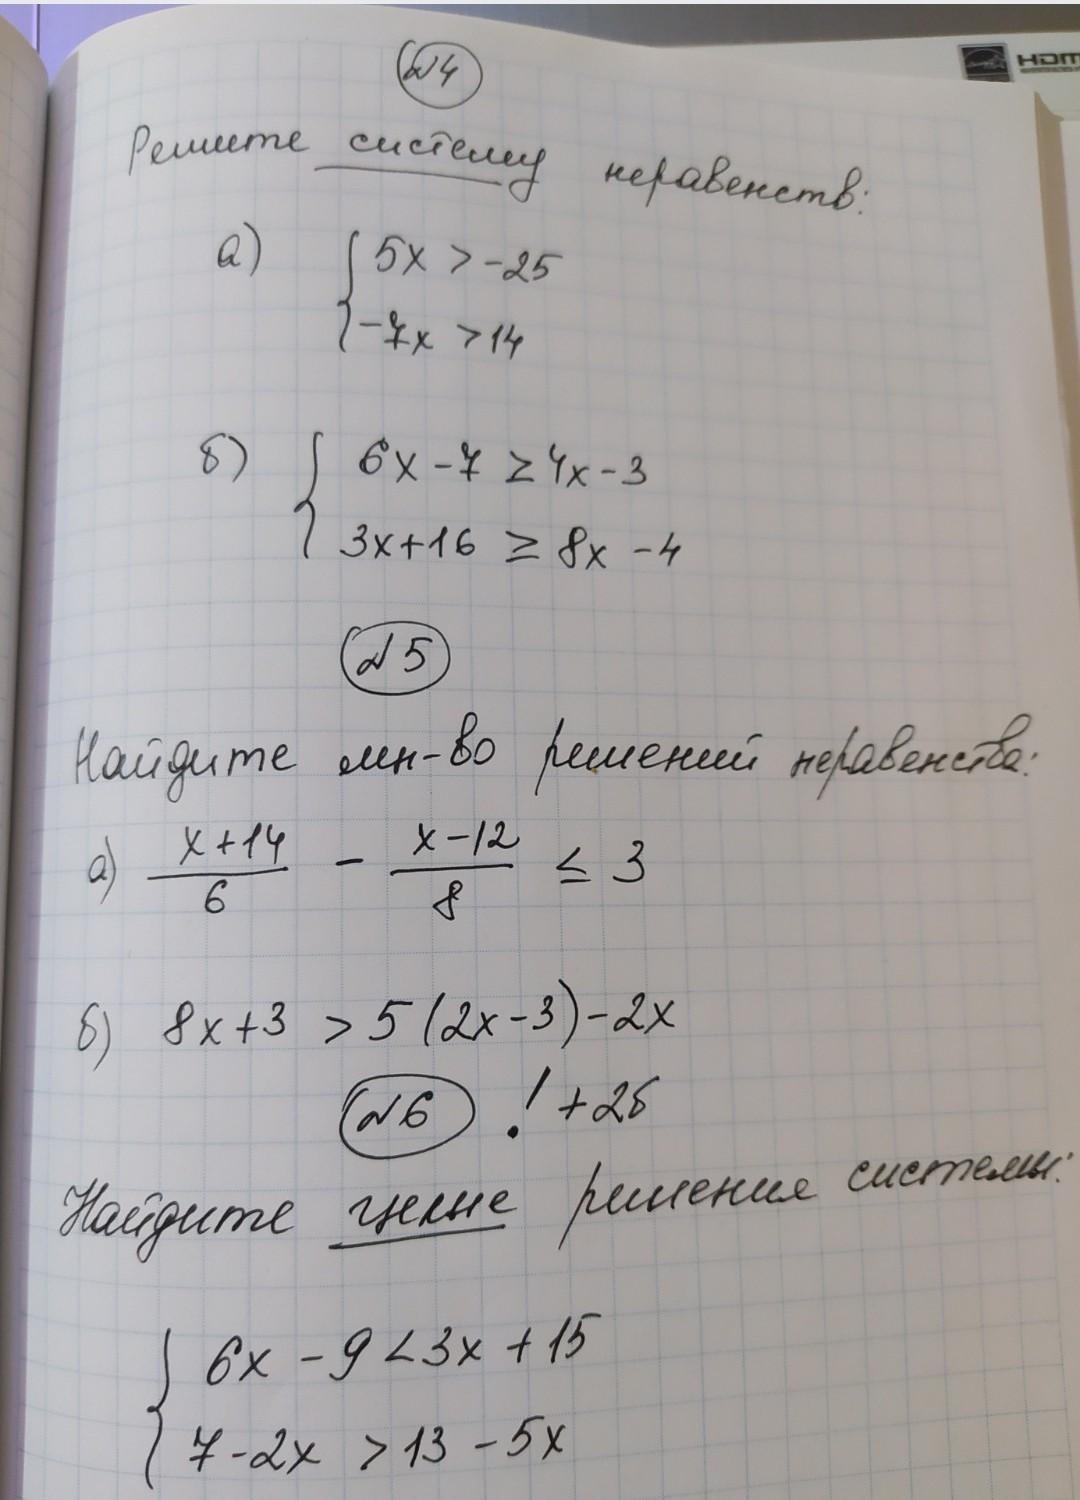 №4
Решите систему неравенств:
а) { 5x > -25
-7x > 14
б) { 6x - 7 ≥ 4x - 3
3x + 16 ≥ 8x - 4
№5
Найдите мн-во решений неравенства:
а) (x + 14)/6 - (x - 12)/8 ≤ 3
б) 8x + 3 > 5(2x - 3) - 2x
№6 ! + 2б
Найдите целые решения системы:
{ 6x - 9 < 3x + 15
7 - 2x > 13 - 5x